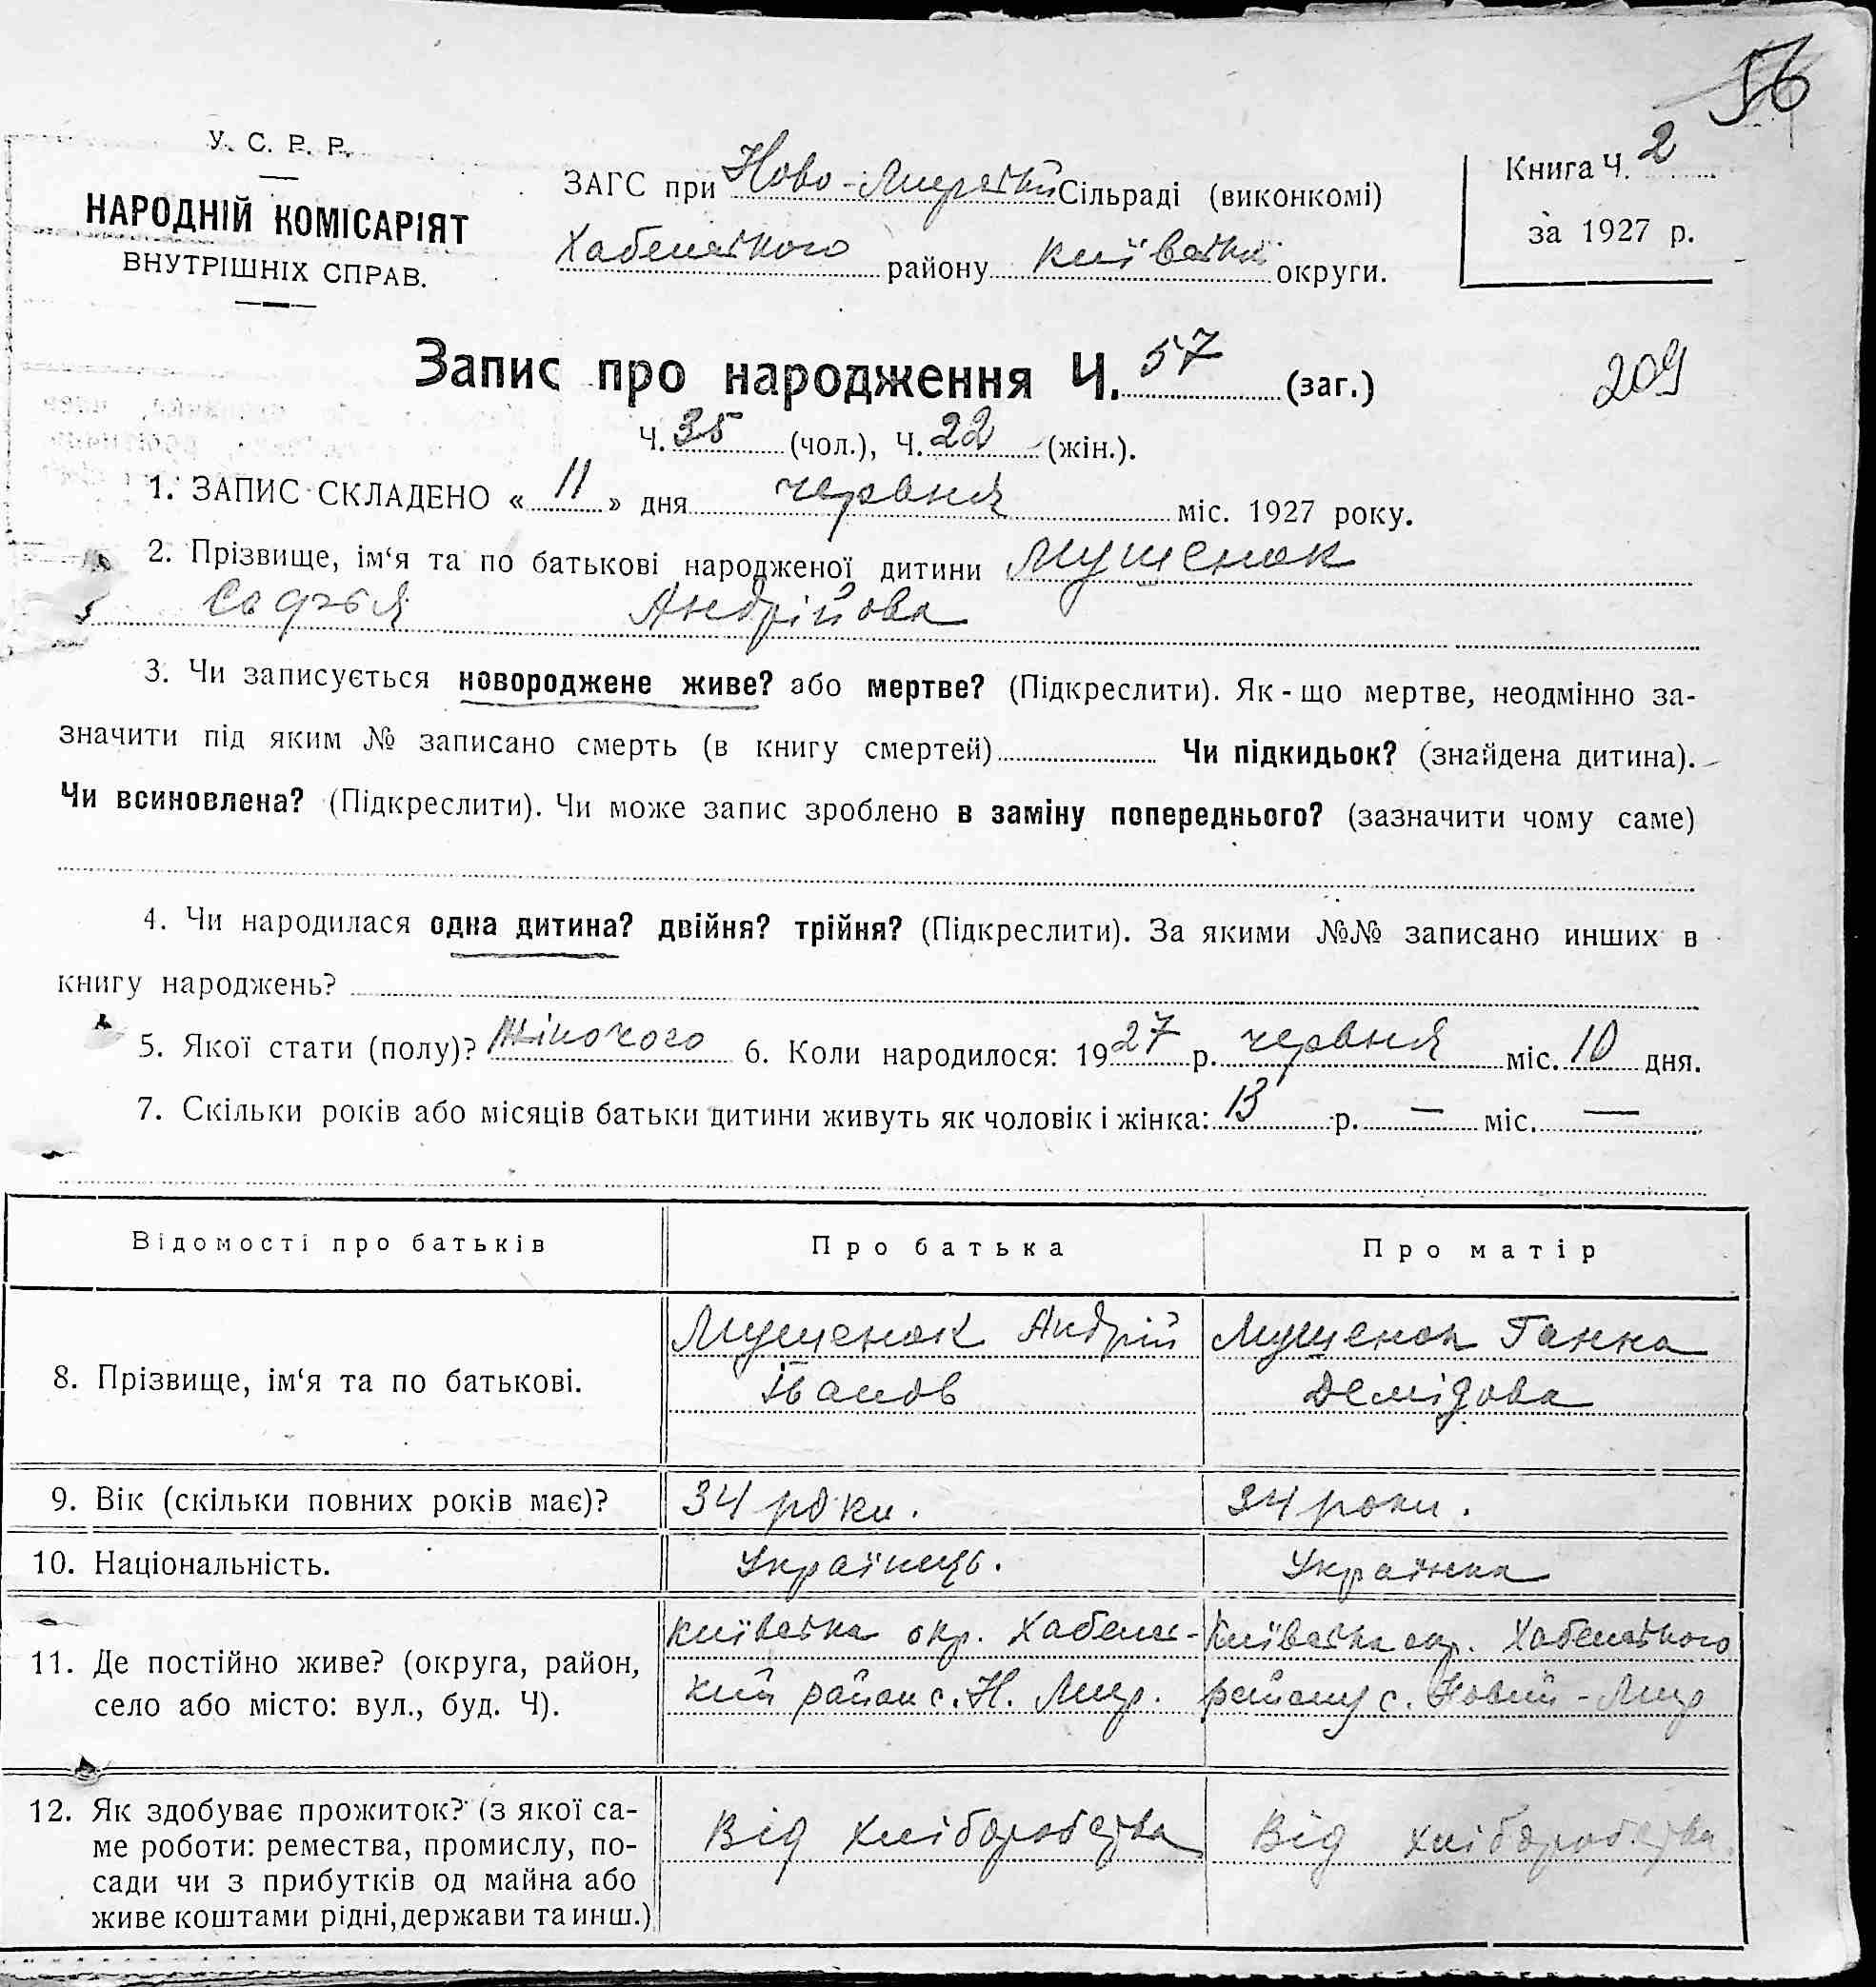 56
У. С. Р. Р.
НАРОДНІЙ КОМІСАРІЯТ
ВНУТРІШНІХ СПРАВ.
ЗАГС при Ново-Мирській Сільраді (виконкомі)
Хабенського району Київської округи.
Книга Ч. 2
за 1927 р.
Запис про народження Ч. 57 (заг.)
209
Ч. 35 (чол.), Ч. 22 (жін.).
1. ЗАПИС СКЛАДЕНО « 11 » дня червня міс. 1927 року.
2. Прізвище, ім‘я та по батькові народженої дитини Мушенок
Софья Андрійова
3. Чи записується новороджене живе? або мертве? (Підкреслити). Як-що мертве, неодмінно за-
значити під яким № записано смерть (в книгу смертей) Чи підкидьок? (знайдена дитина).
Чи всиновлена? (Підкреслити). Чи може запис зроблено в заміну попереднього? (зазначити чому саме)
4. Чи народилася одна дитина? двійня? трійня? (Підкреслити). За якими №№ записано инших в
книгу народжень?
5. Якої стати (полу)? Жіночого 6. Коли народилося: 1927 р. червня міс. 10 дня.
7. Скільки років або місяців батьки дитини живуть як чоловік і жінка: 13 р. — міс. —
Відомості про батьків Про батька Про матір
8. Прізвище, ім‘я та по батькові.
Мушенок Андрій
Іванов
Мушенок Ганна
Демідова
9. Вік (скільки повних років має)? 34 роки. 34 роки.
10. Національність. Українць. Українка
11. Де постійно живе? (округа, район,
село або місто: вул., буд. Ч).
Київська окр. Хабенс-
кий район с. Н. Мир.
Київська окр. Хабенського
району с. Новий-Мир
12. Як здобуває прожиток? (з якої са-
ме роботи: ремества, промислу, по-
сади чи з прибутків од майна або
живе коштами рідні, держави та инш.)
Від хліборобства
Від хліборобства.